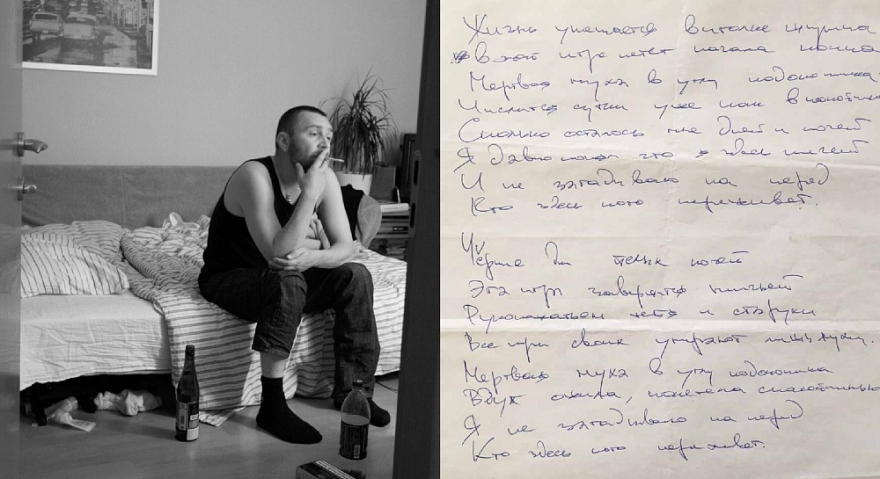 Жизнь умещается в иголке шприца
В этой игре нет начала конца
Мертвая муха в углу подоконника
Числится сутки уже как в
Сколько осталось мне дней и ночей
Я давно понял что здесь ничей
И не загадываю на перед
Кто здесь кого переживет.
Чёрные дни ночей
Эта игра завершится ничьей
Рукопожатьем и старухи
Все при своих умирают лишь мухи.
Мертвая муха в углу подоконника
Вдруг ожила, полетела
Я не загадываю на перед
Кто здесь кого переживет.